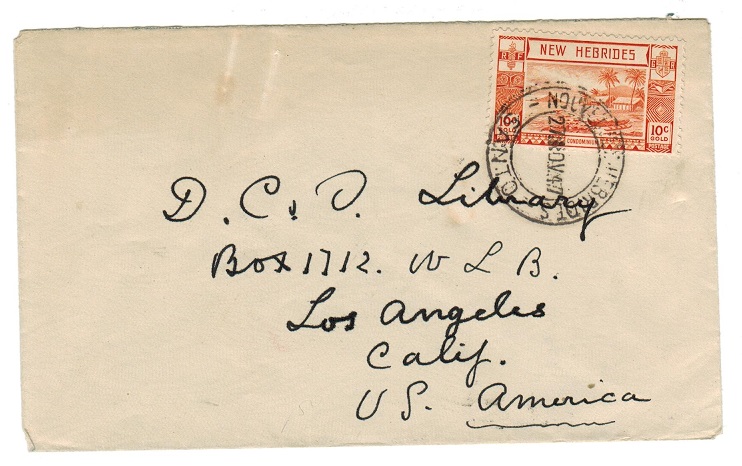 NEW HEBRIDES
R F
10c
GOLD
CONDOMINIUM
10c
GOLD
POSTAGE
27 NOV 47
D. C. D. Library
Box 1712. W L B.
Los Angeles
Calif.
U S. America